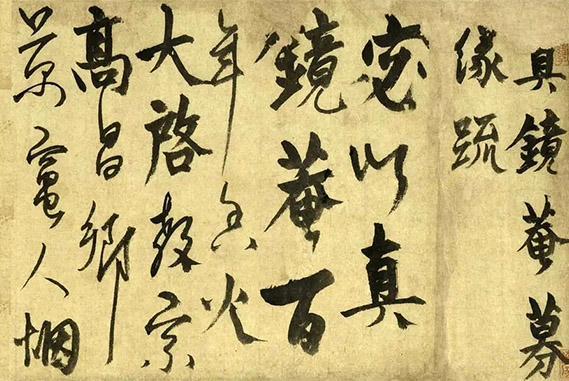 真鏡菴募
緣疏
窃以真
鏡菴百
年香火
大啓教宗
高昌鄉
萬竈人烟